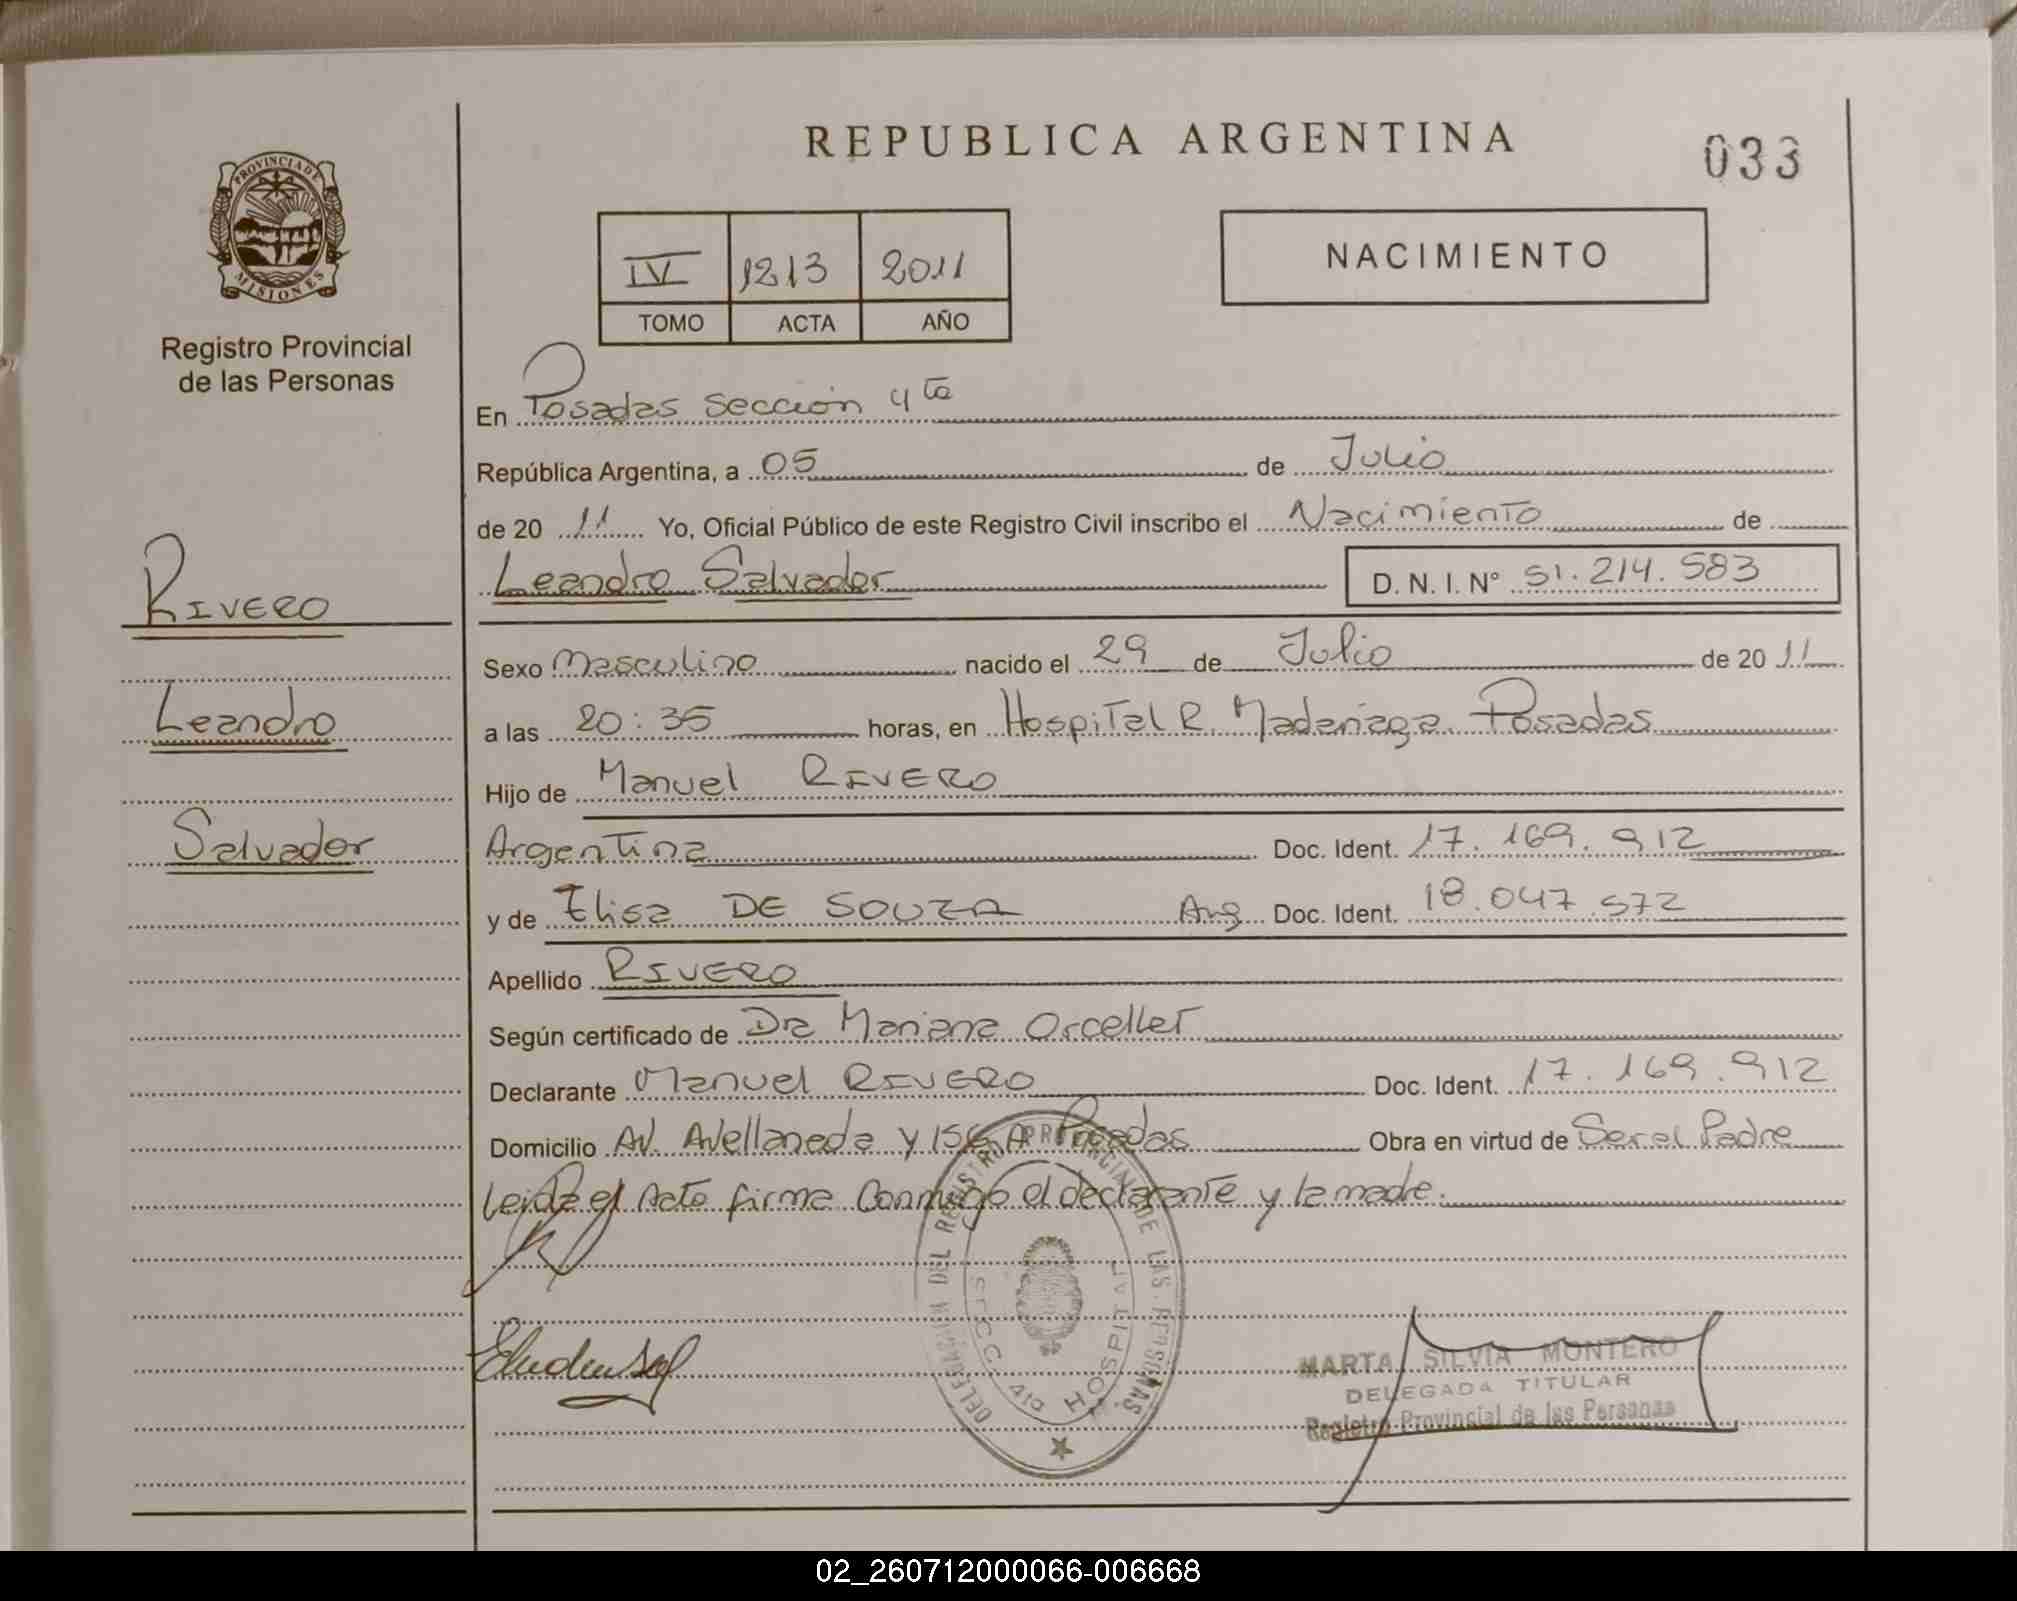 REPUBLICA ARGENTINA
033
PROVINCIA DE
MISIONES
Registro Provincial
de las Personas
IV 1213 2011
TOMO ACTA AÑO
NACIMIENTO
En Posadas Sección 4ta
República Argentina, a 05 de Julio
de 20 11 Yo, Oficial Público de este Registro Civil inscribo el Nacimiento de
Leandro Salvador D. N. I. N° 51.214.583
RIVERO
Leandro
Salvador
Sexo Masculino nacido el 29 de Julio de 20 11
a las 20:35 horas, en Hospital R. Madariaga Posadas
Hijo de Manuel RIVERO
Argentina Doc. Ident. 17.169.912
y de Elisa DE SOUZA Arg Doc. Ident. 18.047.572
Apellido RIVERO
Según certificado de Dra Mariana Orcellet
Declarante Manuel RIVERO Doc. Ident. 17.169.912
Domicilio Av. Avellaneda y 156 A Posadas Obra en virtud de Ser el Padre
Leida el Acta firma Conmigo el declarante y la madre.
DELEGACION DEL REGISTRO PROVINCIAL DE LAS PERSONAS
SECC. 4ta HOSPITAL
MARTA SILVIA MONTERO
DELEGADA TITULAR
Registro Provincial de las Personas
02_260712000066-006668